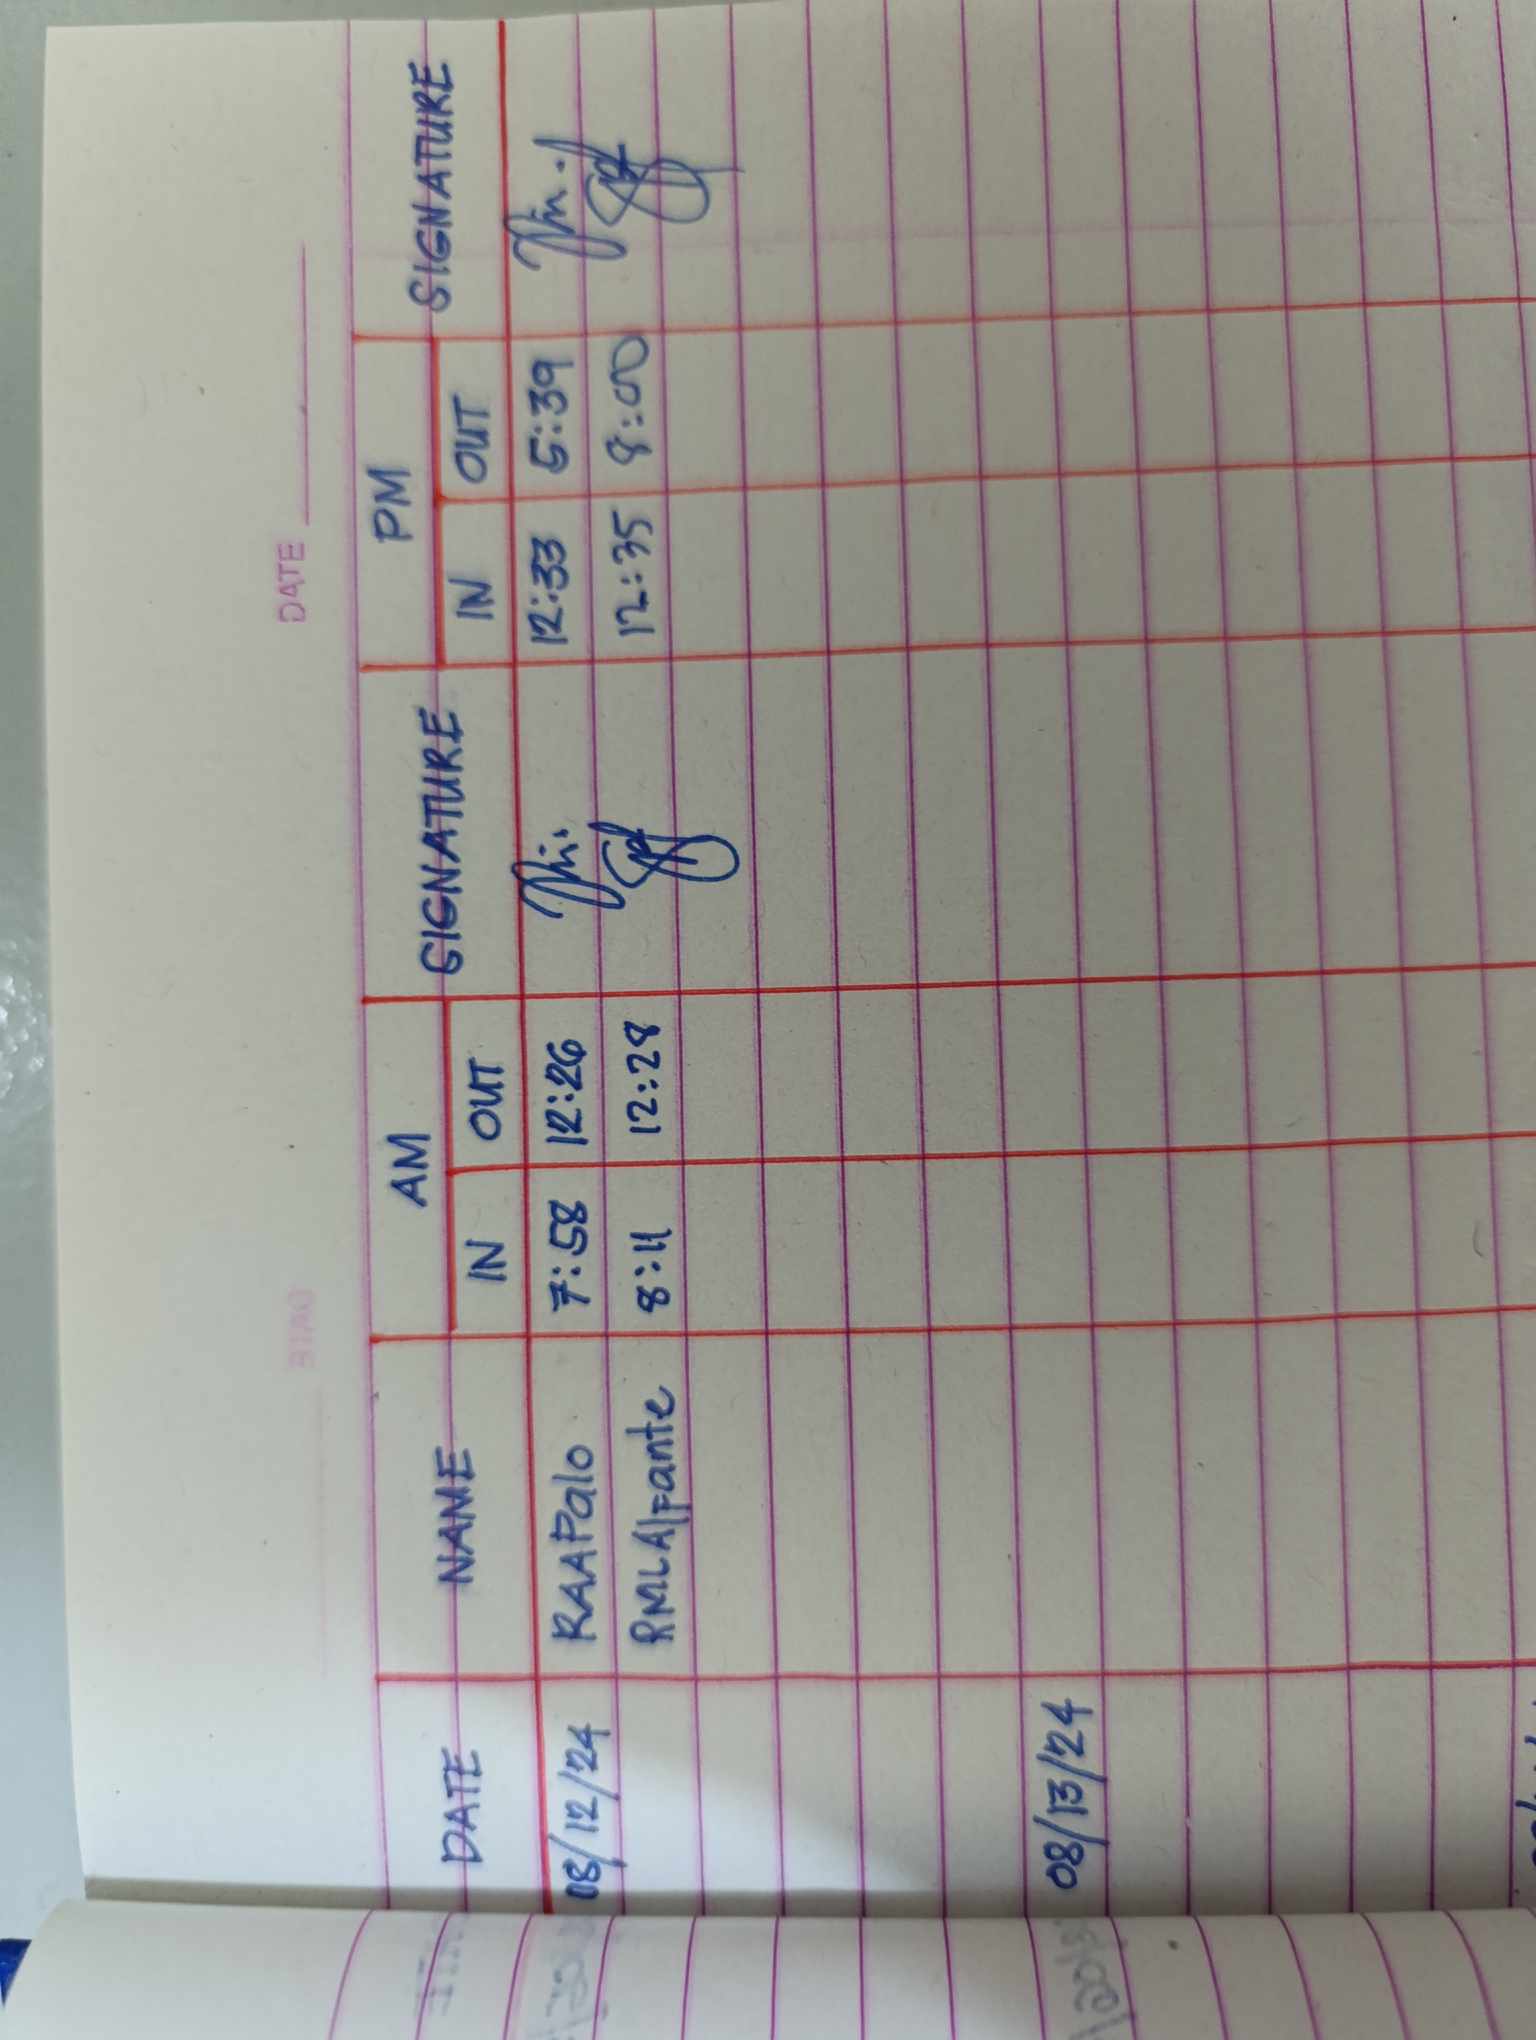 DATE
DATE NAME AM SIGNATURE PM SIGNATURE
IN OUT IN OUT
08/12/24 RAAPalo 7:58 12:26 12:33 5:39
RMLAlFante 8:11 12:28 12:35 8:00
08/13/24